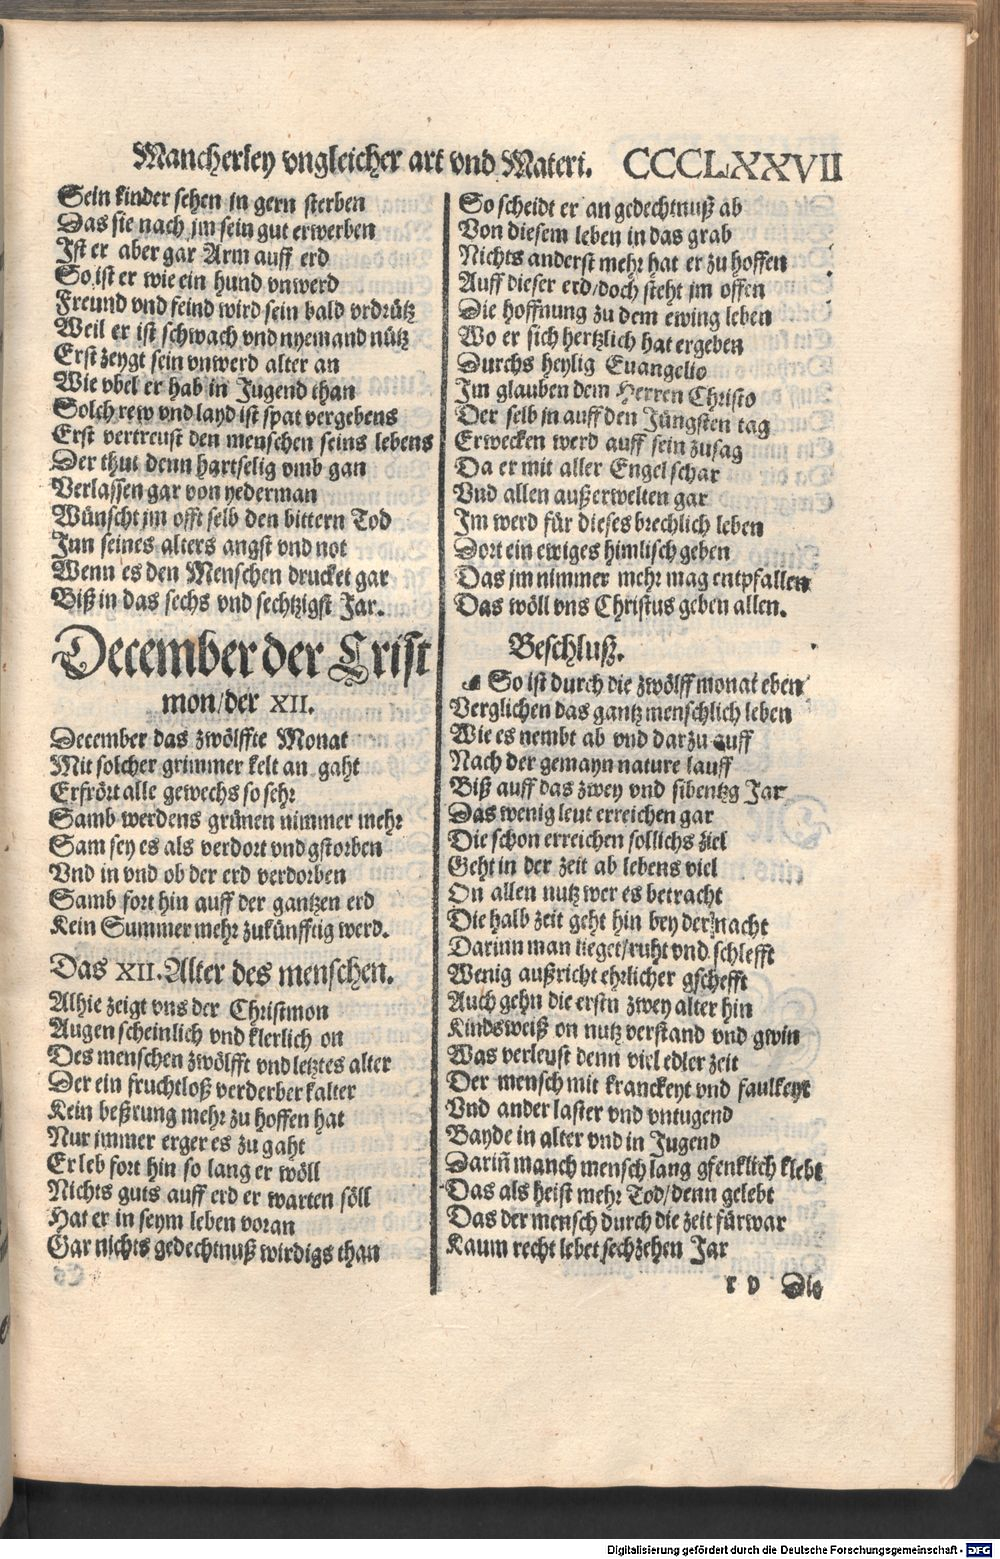 Mancherley vngleicher art vnd Materi. CCCLXXVII
Sein kinder sehen in gern sterben
Das sie nach jm sein gut erwerben
Ist er aber gar Arm auff erd
So ist er wie ein hund vnwerd
Freund vnd feind wird sein bald vrdrütz
Weil er ist schwach vnd nyemand nütz
Erst zeygt sein vnwerd alter an
Wie vbel er hab in Jugend than
Solch rew vnd layd ist spat vergebens
Erst vertreust den menschen seins lebens
Der thut denn hartselig vmb gan
Verlassen gar von yederman
Wünscht jm offt selb den bittern Tod
Inn seines alters angst vnd not
Wenn es den Menschen drucket gar
Biß in das sechs vnd sechtzigst Jar.
December der Crist
mon/der XII.
December das zwölffte Monat
Mit solcher grimmer kelt an gaht
Erfrört alle gewechs so sehr
Samb werdens grünen nimmer mehr
Sam sey es als verdort vnd gstorben
Vnd in vnd ob der erd verdorben
Samb fort hin auff der gantzen erd
Kein Summer mehr zukünfftig werd.
Das XII. Alter des menschen.
Alhie zeigt vns der Christmon
Augenscheinlich vnd klerlich on
Des menschen zwölfft vnd letztes alter
Der ein fruchtloß verderber kalter
Kein beßrung mehr zu hoffen hat
Nur immer erger es zu gaht
Er leb fort hin so lang er wöll
Nichts guts auff erd er warten söll
Hat er in seym leben voran
Gar nichts gedechtnuß wirdigs than
So scheidt er an gedechtnuß ab
Von diesem leben in das grab
Nichts anderst mehr hat er zu hoffen
Auff dieser erd/doch steht jm offen
Die hoffnung zu dem ewing leben
Wo er sich hertzlich hat ergeben
Durchs heylig Euangelio
Im glauben dem Herren Christo
Der selb jn auff den Jüngsten tag
Erwecken werd auff sein zusag
Da er mit aller Engel schar
Vnd allen außerwelten gar
Im werd für dieses brechlich leben
Dort ein ewiges himlisch geben
Das jm nimmer mehr mag entpfallen
Das wöll vns Christus geben allen.
Beschluß.
So ist durch die zwölff monat eben
Verglichen das gantz menschlich leben
Wie es nembt ab vnd darzu auff
Nach der gemayn nature lauff
Biß auff das zwey vnd sibentzg Jar
Das wenig leut erreichen gar
Die schon erreichen sollichs ziel
Geht in der zeit ab lebens viel
On allen nutz wer es betracht
Die halb zeit geht hin bey der nacht
Darinn man lieget/ruht vnd schlefft
Wenig außricht ehrlicher gschefft
Auch gehn die erstn zwey alter hin
Kindsweiß on nutz verstand vnd gwin
Was verleust denn viel edler zeit
Der mensch mit kranckeyt vnd faulkeyt
Vnd ander laster vnd vntugend
Bayde in alter vnd in Jugend
Dariñ manch mensch lang gfenklich klebt
Das als heist mehr Tod/denn gelebt
Das der mensch durch die zeit fürwar
Kaum recht lebet sechzehen Jar
r v Die
Digitalisierung gefördert durch die Deutsche Forschungsgemeinschaft - DFG